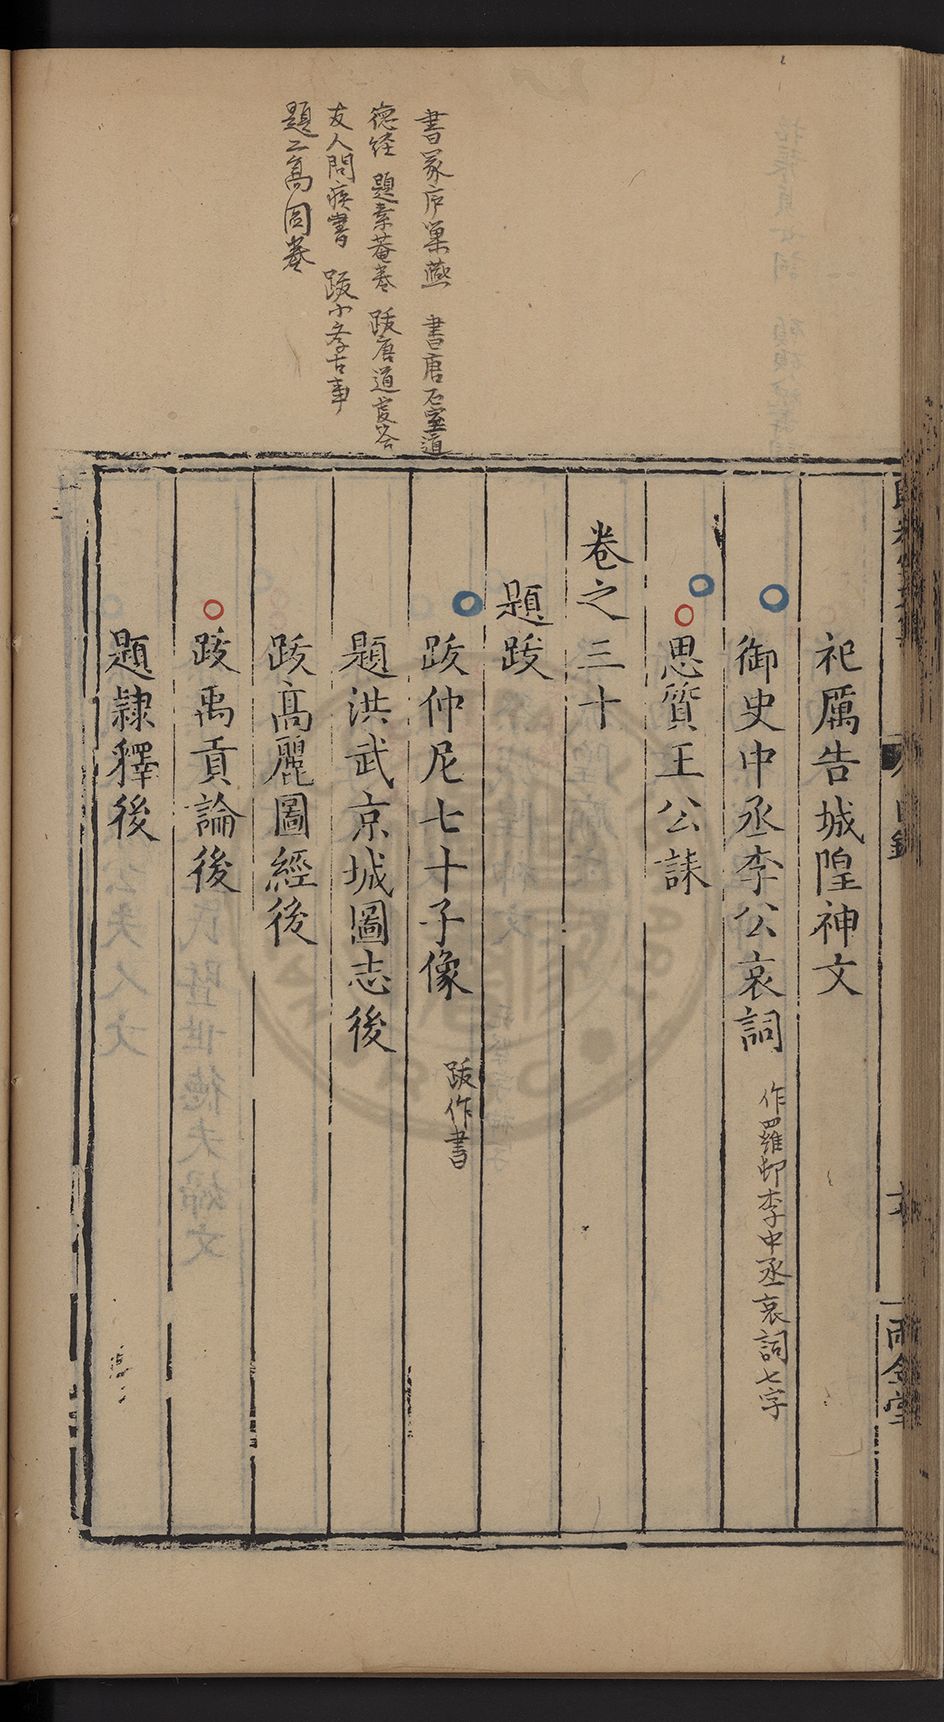 書冢戶巢燕　書唐石室道
德經　題素菴卷　跋唐道虔答
友人問疾書　跋小學古事
題二高圖卷
祀厲告城隍神文
御史中丞李公哀詞　作羅卭李中丞哀詞七字
思質王公誄
卷之三十
題跋
跋仲尼七十子像　跋作書
題洪武京城圖志後
跋高麗圖經後
跋禹貢論後
題隸釋後
目錄
雨金堂